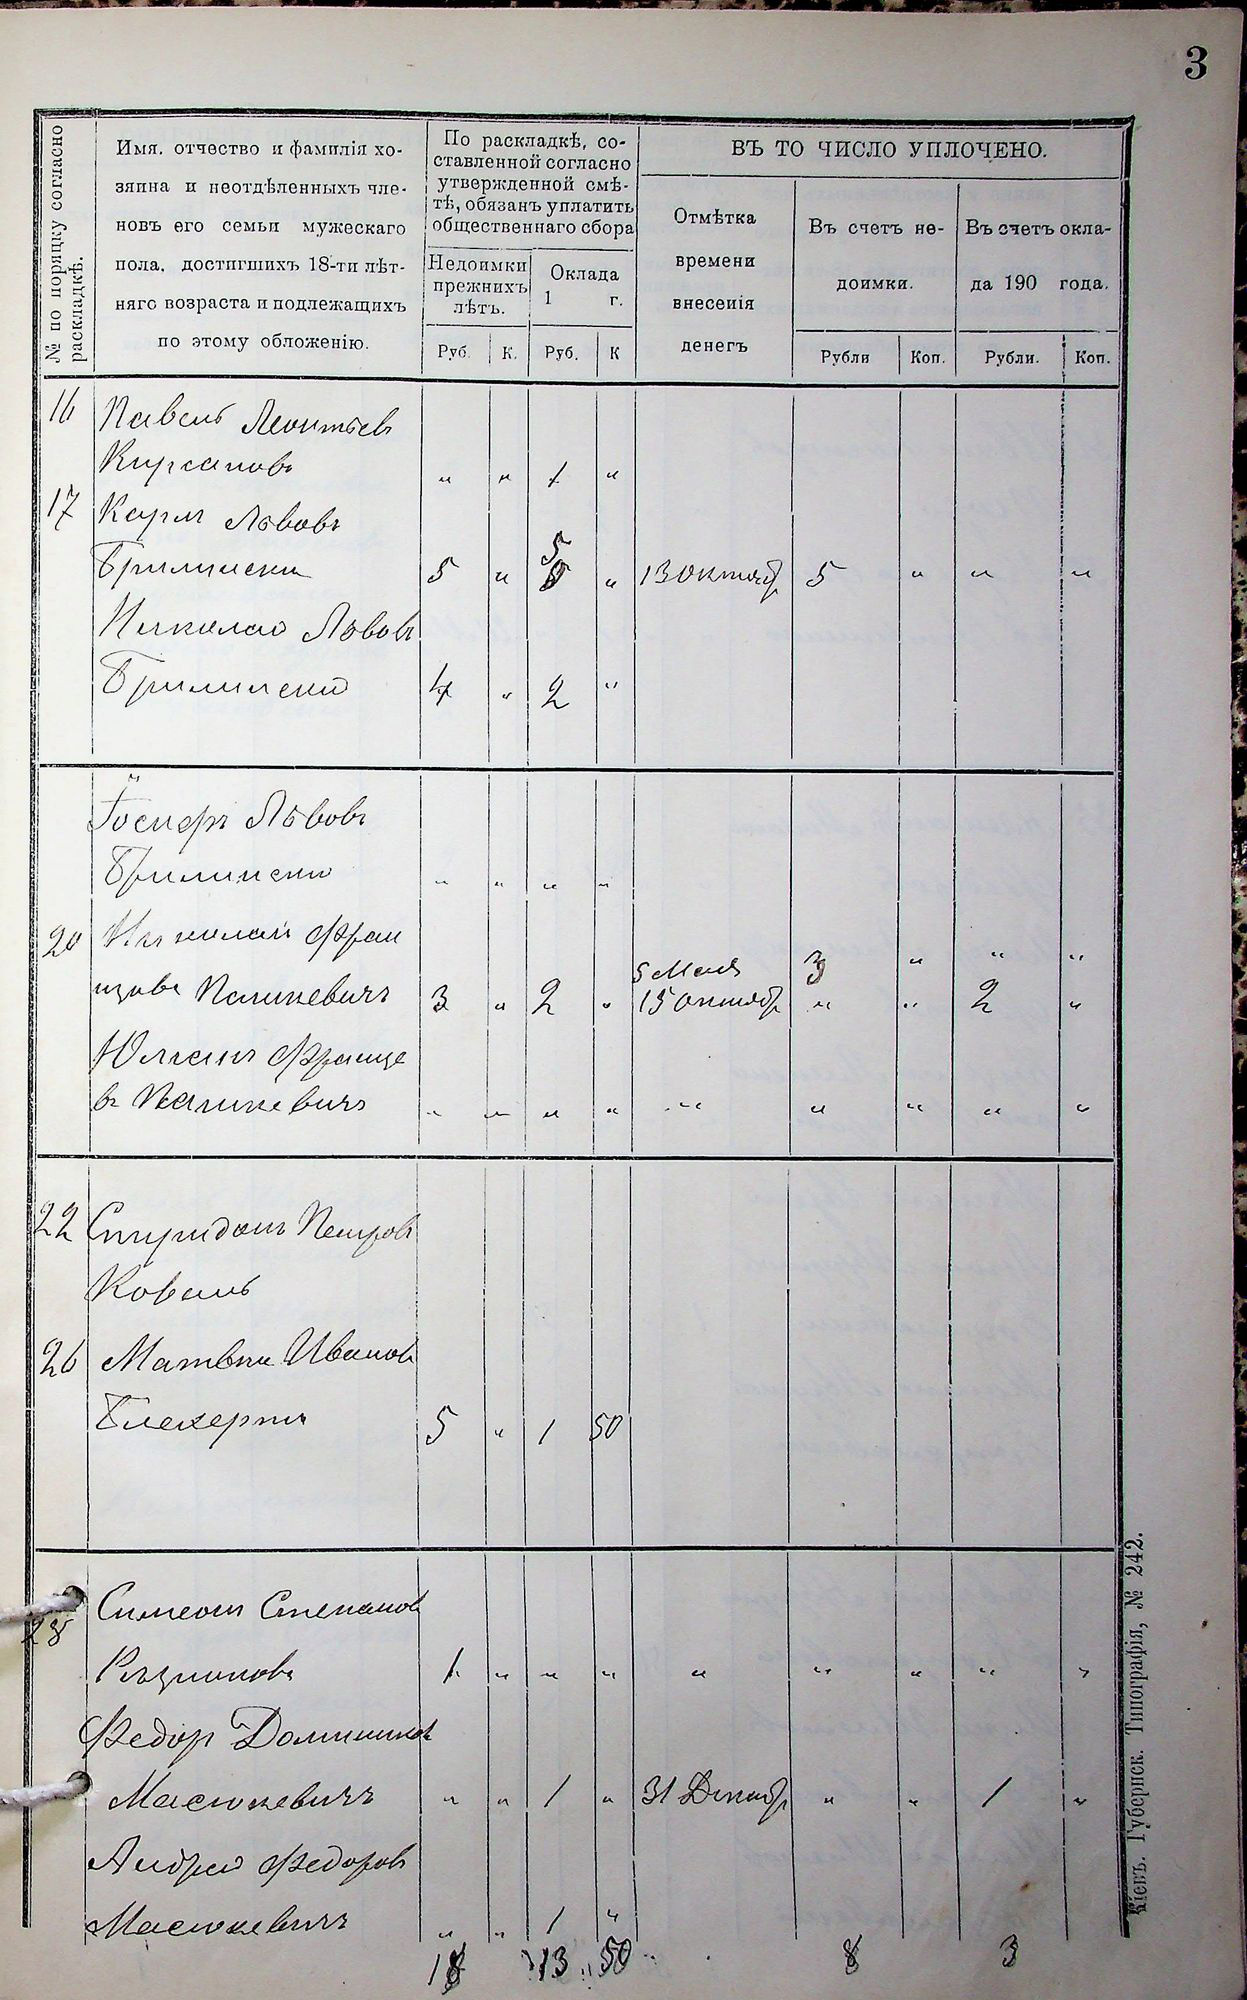 3
№ по порядку согласно
раскладкѣ.
Имя, отчество и фамилія хо-
зяина и неотдѣленныхъ чле-
новъ его семьи мужескаго
пола, достигшихъ 18-ти лѣт-
няго возраста и подлежащихъ
по этому обложенію.
По раскладкѣ, со-
ставленной согласно
утвержденной смѣ-
тѣ, обязанъ уплатить
общественнаго сбора
Недоимки
прежнихъ
лѣтъ.
Оклада
1 г.
Руб. К. Руб. К
ВЪ ТО ЧИСЛО УПЛОЧЕНО.
Отмѣтка
времени
внесенія
денегъ
Въ счетъ не-
доимки.
Въ счетъ окла-
да 190 года.
Рубли Коп. Рубли. Коп.
16 Павелъ Леонтьевъ
Кирсановъ „ „ 1 „
17 Карлъ Львовъ
5
Брилински 5 „ 5 „ 13 октяб 5 „ „ „
Николай Львовъ
Брилинский 4 „ 2 „
Іосифъ Львовъ
Брилинский „ „ „ „
20 Николай Фран
5 Мая 3 „ „ „
цовъ Паликевичъ 3 „ 2 „ 15 октяб „ „ 2 „
Юлианъ Францо
въ Паликевичъ „ „ „ „ „ „ „ „ „
22 Спиридонъ Петровъ
Коваль
26 Матвѣй Ивановъ
Блехертъ 5 „ 1 50
28 Симеонъ Степановъ
1 „ „ „ „ „ „ „ „
Федоръ Доминиковъ
Масюкевичъ „ „ 1 „ 31 Декабр „ „ 1 „
Андрей Федоровъ
Масюкевичъ „ „ 1 „
18 13 50 8 3
Кіевъ. Губернск. Типографія, № 242.